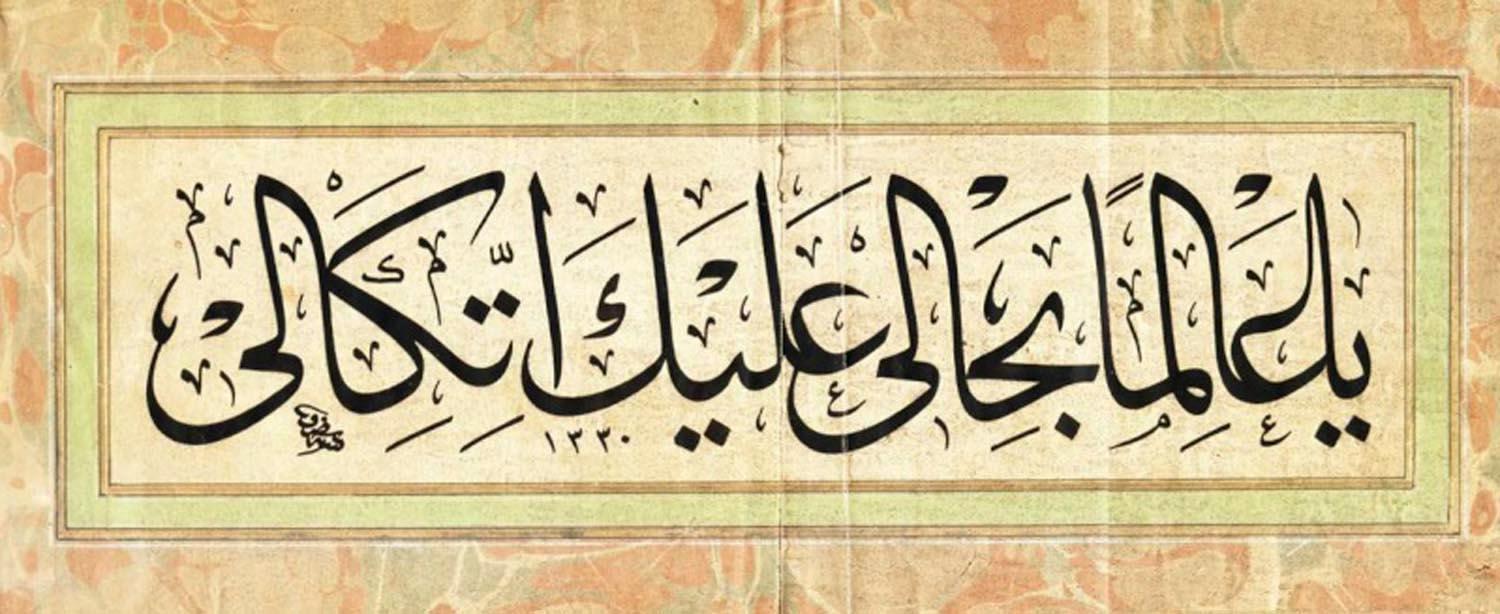 يَا عَالِمًا بِحَالِى عَلَيْكَ اتِّكَالِى
١٣٣٠